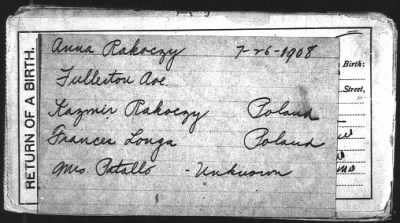 RETURN OF A BIRTH.
Anna Rakoczy 7-26-1908
Birth:
Fullerton Ave.
Street,
Kazmir Rakoczy Poland
Frances Longa Poland
Mrs. Patallo - Unknown